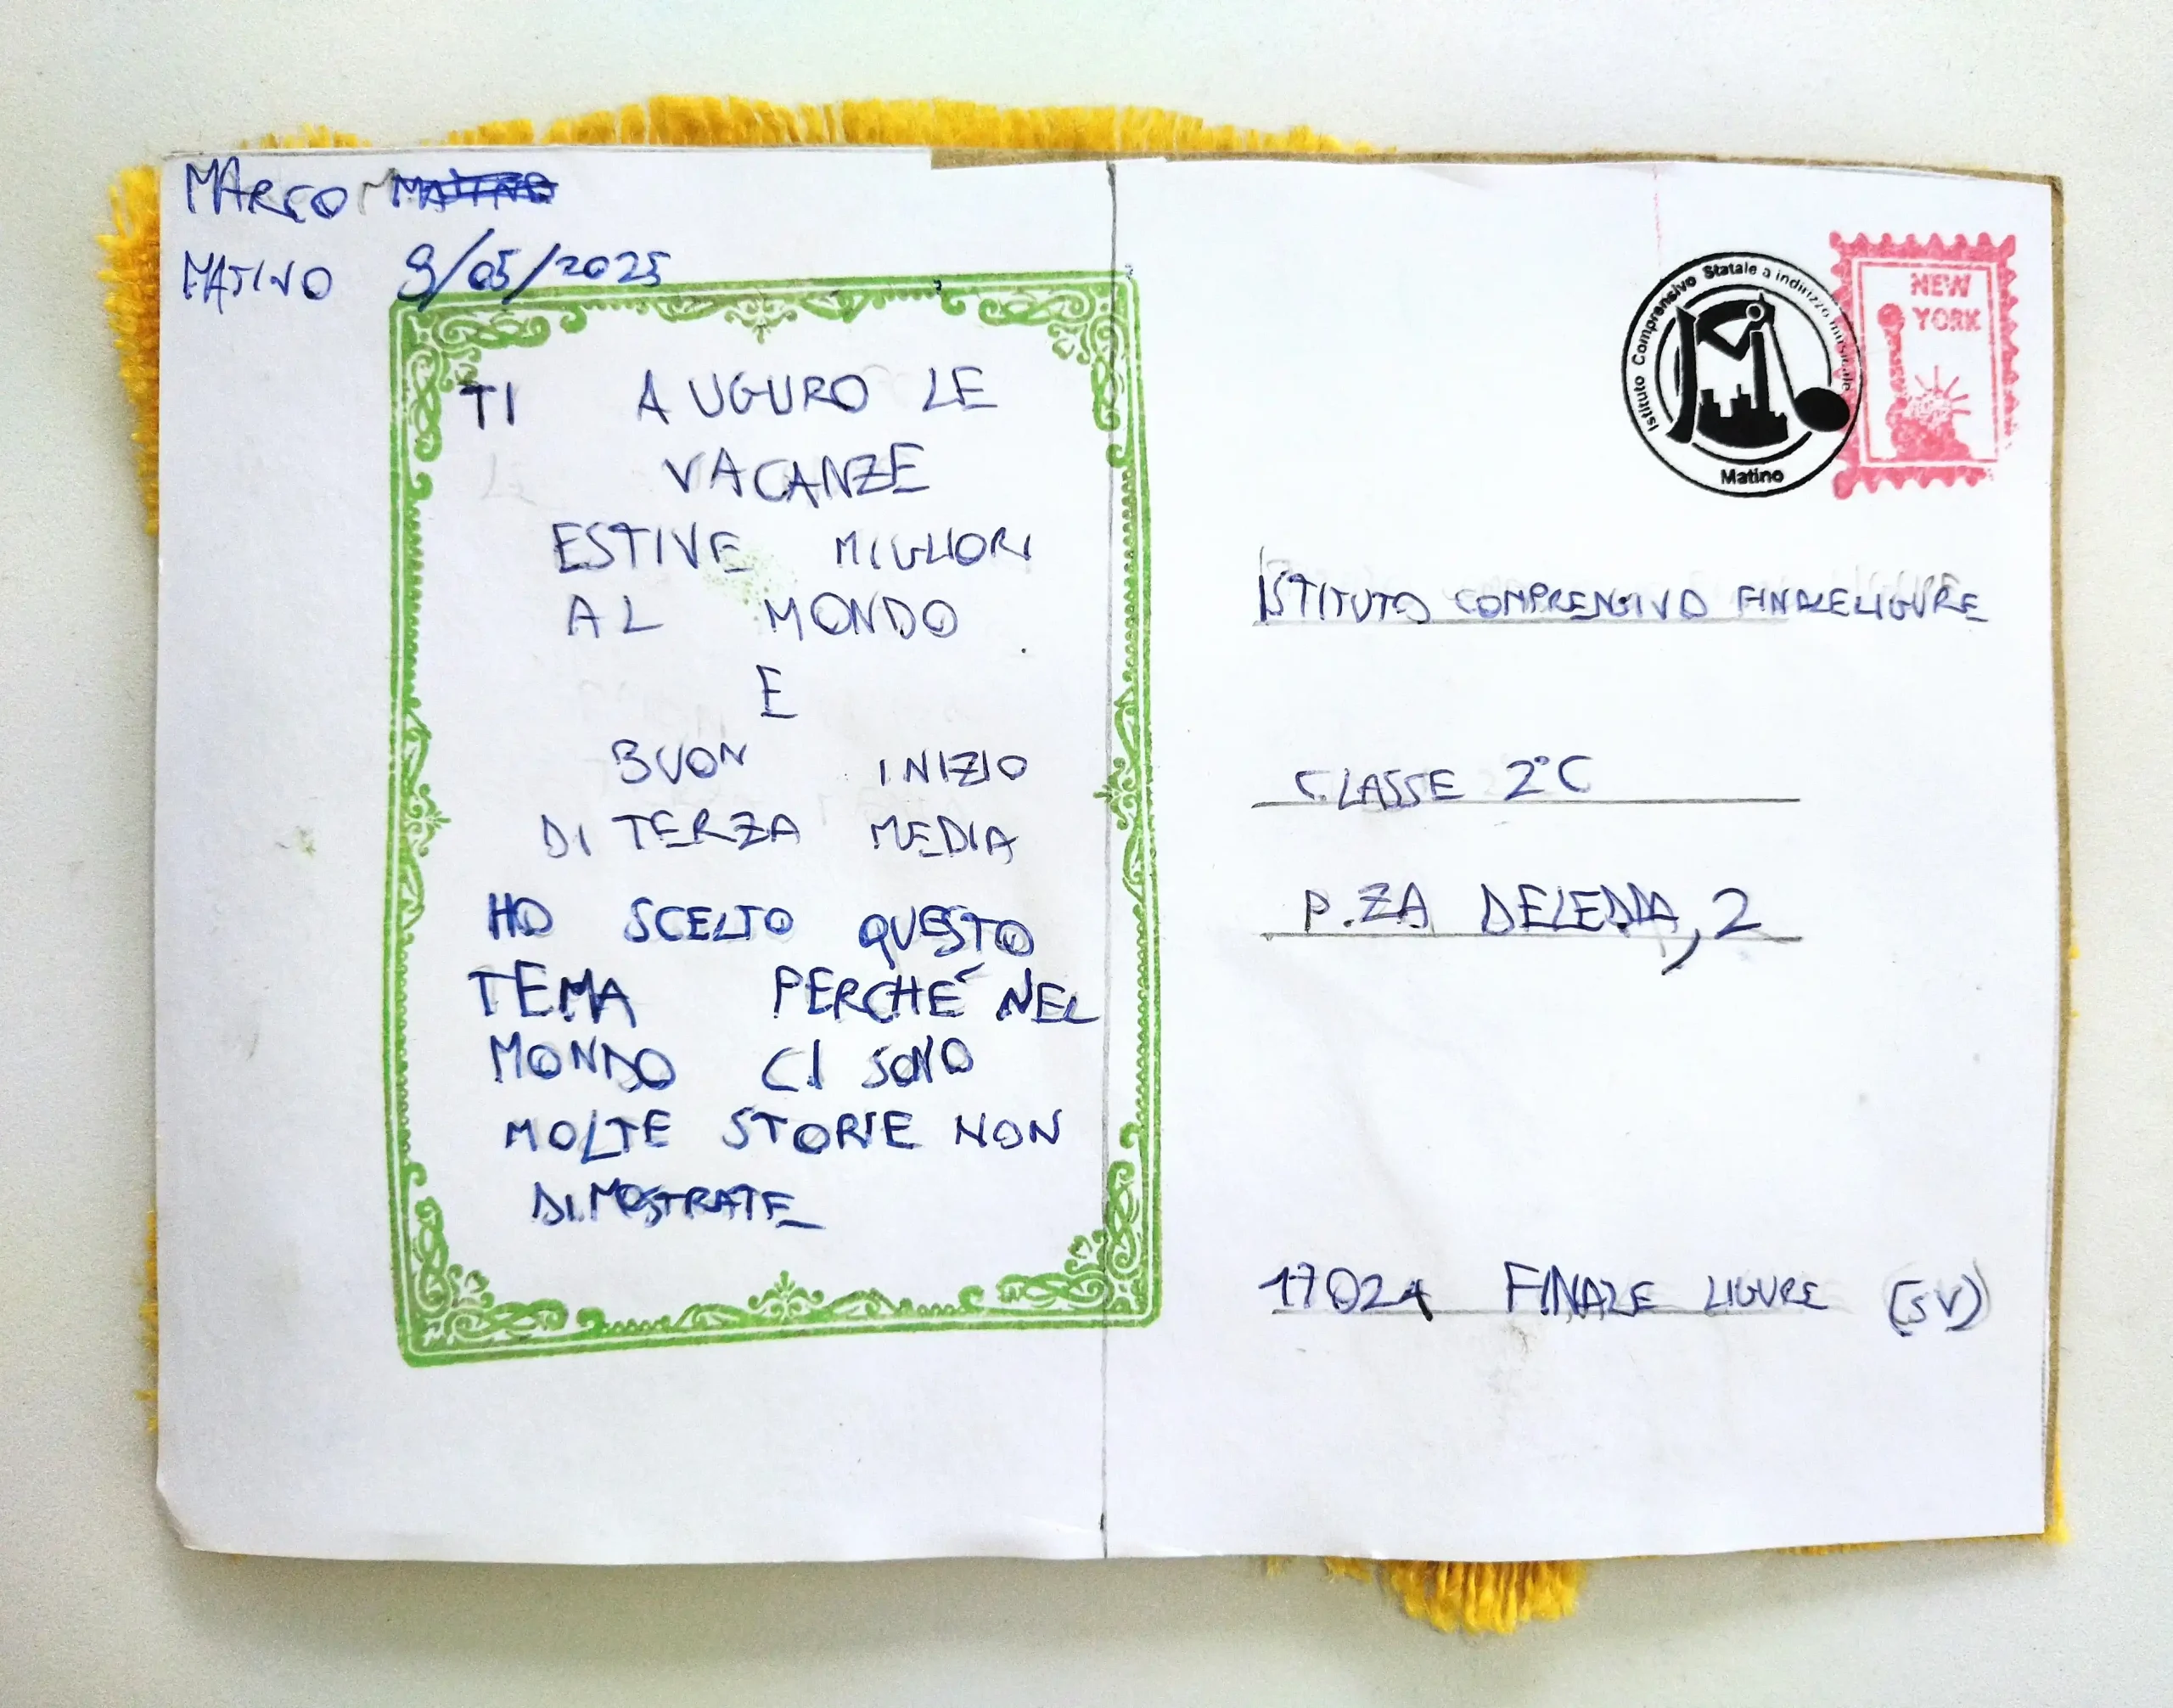 MARCO M
MATINO 9/05/2025
TI AUGURO LE
VACANZE
ESTIVE MIGLIORI
AL MONDO
E
BUON INIZIO
DI TERZA MEDIA
HO SCELTO QUESTO
TEMA PERCHÉ NEL
MONDO CI SONO
MOLTE STORIE NON
DIMOSTRATE
Istituto Comprensivo Statale a indirizzo musicale
Matino
NEW
YORK
ISTITUTO COMPRENSIVO FINALE LIGURE
CLASSE 2°C
P.ZA DELEDDA, 2
17024 FINALE LIGURE (SV)